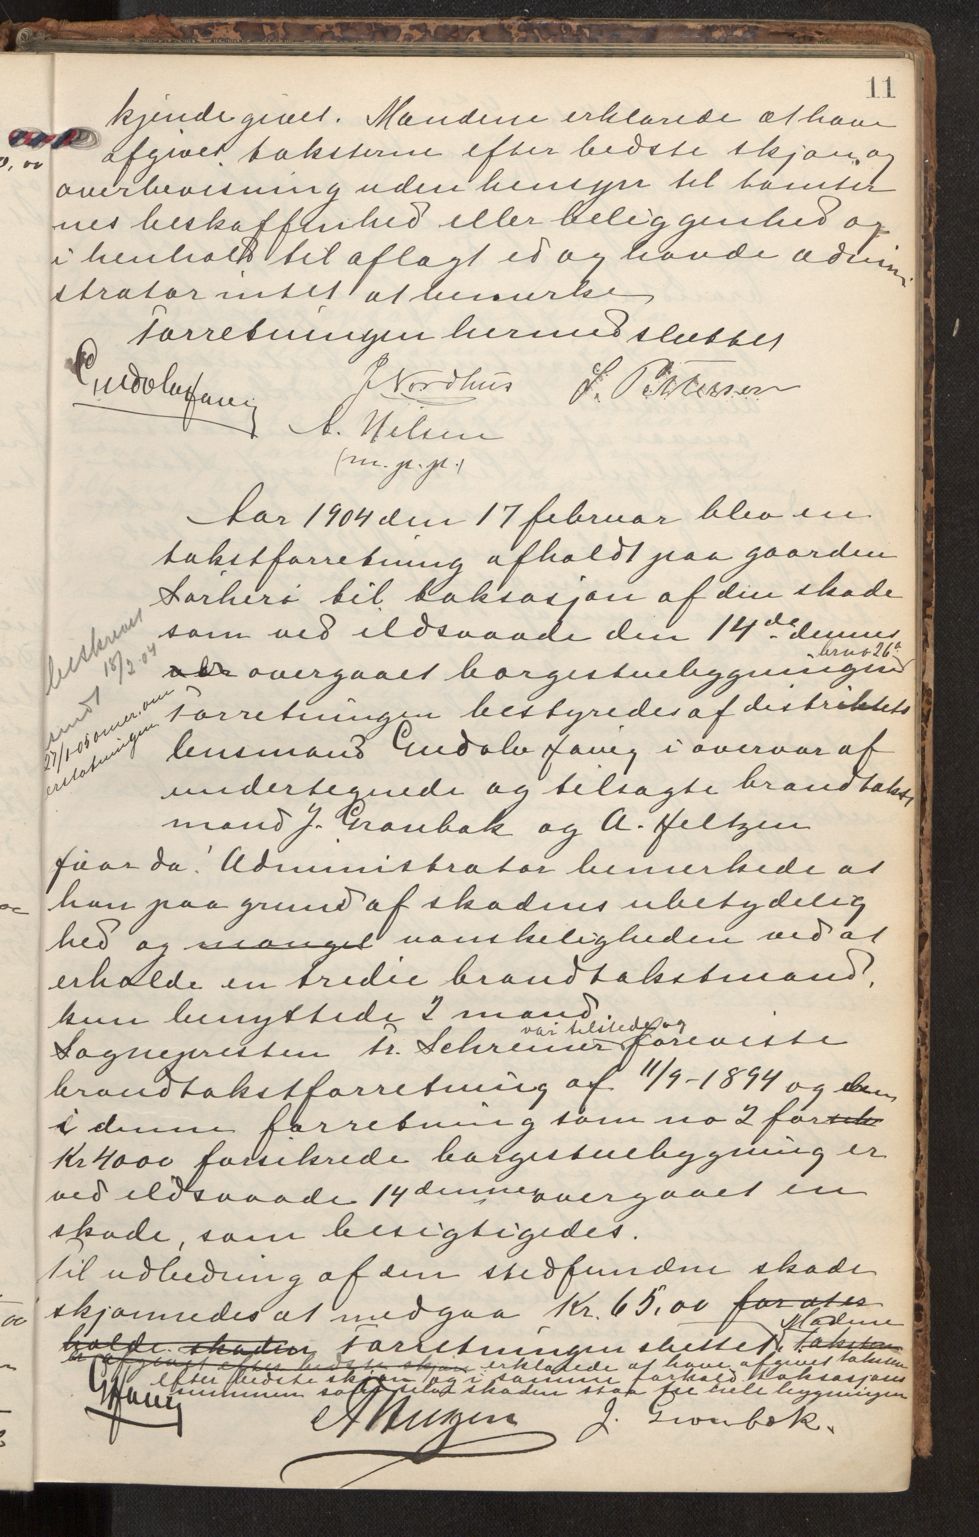 11
kjendegivet. Mændene erklærede at have
afgivet taksterne efter bedste skjøn og
overbevisning uden hensyn til tomter
nes beskaffenhed eller beliggenhed og
i henhold til aflagt ed og havde admini
strator intet at bemerke
Forretningen hermed sluttet
Gudolv Favig J Nordhus L. Pettersen
A. Nilsen
(m. p. p.)
Aar 1904 den 17 februar blev en
takstforretning afholdt paa gaarden
Sørherø til taksasjon af den skade
som ved ildsvaade den 14de dennes
brno 26a
er overgaaet borgestuebygningen
Forretningen bestyredes af distriktets
lensmand Gudolv Favig i overvær af
undertegnede og tilsagte brandtakst
mænd J. Grønbæk og A. Heltzen
beskreven
sendt 18/2 04
27/1 05 omer. om
erstatningen
fra Dø. Administrator bemerkede at
han paa grund af skadens ubetydelig
hed og mangel vanskeligheden ved at
erholde en tredie brandtakstmand,
kun benyttede 2 mænd.
var tilstede og
Sognepresten Fr. Schreiner foreviste
brandtakstforretning af 11/9-1894 og den
i denne forretning som no 2 for
Kr 4000 forsikrede borgestuebygning er
ved ildsvaade 14 dennes overgaaet en
skade, som besigtigedes.
Til udbedring af den stedfundne skade
skjønnedes at medgaa Kr. 65,00 for at er
Mædene
holde skaden Forretningen sluttet. taksten
er afgivet efter bedste skjøn erklærede at have afgivet taksten
efter bedste skjøn og i samme forhold taksasjons
summen som skaden staa til hele bygningen
GFavig A Heltzen J. Grønbæk.